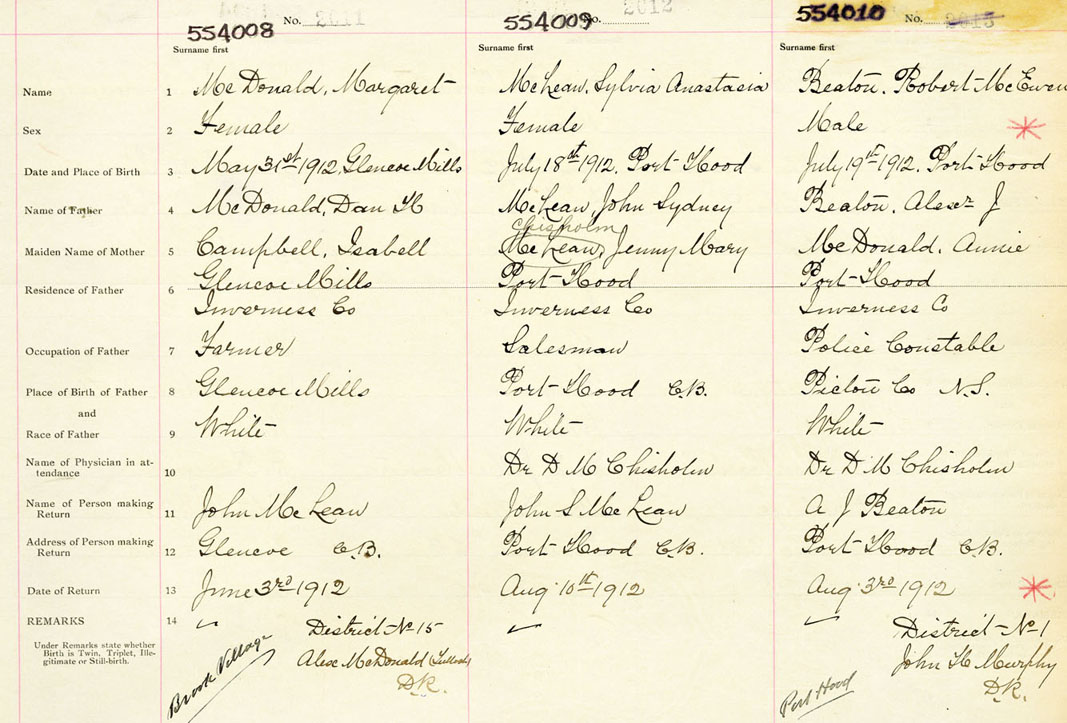 554008 No. 2011 554009 No. 2012 554010 No. 2013
Surname first Surname first Surname first
Name 1 McDonald, Margaret McLean, Sylvia Anastasia Beaton, Robert McEwen
Sex 2 Female Female Male
Date and Place of Birth 3 May 31st 1912, Glencoe Mills July 18th 1912, Port Hood July 19th 1912, Port Hood
Name of Father 4 McDonald, Dan H McLean, John Sydney Beaton, Alex J
Chisholm
Maiden Name of Mother 5 Campbell, Isabell McLean, Jenny Mary McDonald, Annie
Residence of Father 6 Glencoe Mills Port Hood Port Hood
Inverness Co Inverness Co Inverness Co
Occupation of Father 7 Farmer Salesman Police Constable
Place of Birth of Father 8 Glencoe Mills Port Hood C.B. Pictou Co N.S.
and
Race of Father 9 White White White
Name of Physician in at-
tendance 10 Dr D M Chisholm Dr D M Chisholm
Name of Person making
Return 11 John McLean John S McLean A J Beaton
Address of Person making
Return 12 Glencoe C.B. Port Hood C.B. Port Hood C.B.
Date of Return 13 June 3rd 1912 Aug 10th 1912 Aug 3rd 1912
REMARKS 14 District No 15 District No 1
Under Remarks state whether
Birth is Twin, Triplet, Ille-
gitimate or Still-birth.
Alex McDonald (Tulloch) John H Murphy
D.R. D.R.
Brook Village Port Hood